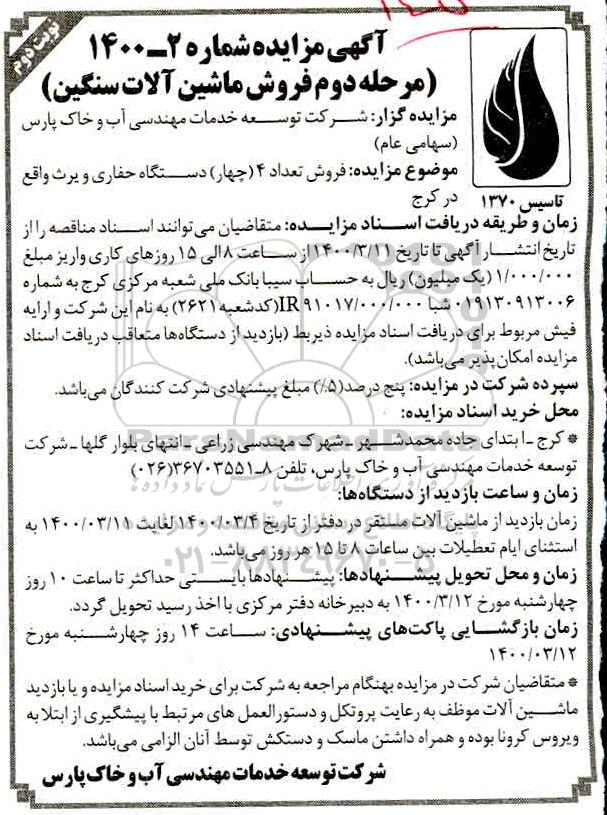 نوبت دوم
آگهی مزایده شماره ۲ـ۱۴۰۰
(مرحله دوم فروش ماشین آلات سنگین)
مزایده گزار: شرکت توسعه خدمات مهندسی آب و خاک پارس
(سهامی عام)
موضوع مزایده: فروش تعداد ۴ (چهار) دستگاه حفاری ویرث واقع
در کرج
تاسیس ۱۳۷۰
زمان و طریقه دریافت اسناد مزایده: متقاضیان می‌توانند اسناد مناقصه را از
تاریخ انتشار آگهی تا تاریخ ۱۴۰۰/۳/۱۱ از ساعت ۸ الی ۱۵ روزهای کاری واریز مبلغ
۱/۰۰۰/۰۰۰ (یک میلیون) ریال به حساب سیبا بانک ملی شعبه مرکزی کرج به شماره
۰۱۹۱۳۰۹۱۳۰۰۶ شبا IR ۹۱۰۱۷/۰۰۰/۰۰۰ (کدشعبه ۲۶۲۱) به نام این شرکت و ارایه
فیش مربوط برای دریافت اسناد مزایده ذیربط (بازدید از دستگاه‌ها متعاقب دریافت اسناد
مزایده امکان‌پذیر می‌باشد).
سپرده شرکت در مزایده: پنج درصد(۵٪) مبلغ پیشنهادی شرکت کنندگان می‌باشد.
محل خرید اسناد مزایده:
* کرج ـ ابتدای جاده محمدشهر ـ شهرک مهندسی زراعی ـ انتهای بلوار گلها ـ شرکت
توسعه خدمات مهندسی آب و خاک پارس، تلفن ۸ـ۳۶۷۰۳۵۵۱(۰۲۶)
زمان و ساعت بازدید از دستگاه‌ها:
زمان بازدید از ماشین آلات مستقر در دفتر از تاریخ ۱۴۰۰/۰۳/۴ لغایت ۱۴۰۰/۰۳/۱۱ به
استثنای ایام تعطیلات بین ساعات ۸ تا ۱۵ هر روز می‌باشد.
زمان و محل تحویل پیشنهادها: پیشنهادها بایستی حداکثر تا ساعت ۱۰ روز
چهارشنبه مورخ ۱۴۰۰/۳/۱۲ به دبیرخانه دفتر مرکزی با اخذ رسید تحویل گردد.
زمان بازگشایی پاکت‌های پیشنهادی: ساعت ۱۴ روز چهارشنبه مورخ
۱۴۰۰/۰۳/۱۲
* متقاضیان شرکت در مزایده بهنگام مراجعه به شرکت برای خرید اسناد مزایده و یا بازدید
ماشین آلات موظف به رعایت پروتکل و دستورالعمل های مرتبط با پیشگیری از ابتلا به
ویروس کرونا بوده و همراه داشتن ماسک و دستکش توسط آنان الزامی می‌باشد.
شرکت توسعه خدمات مهندسی آب و خاک پارس
ParsNamadData
۰۲۱-۸۸۳۴۹۶۷۰-۵